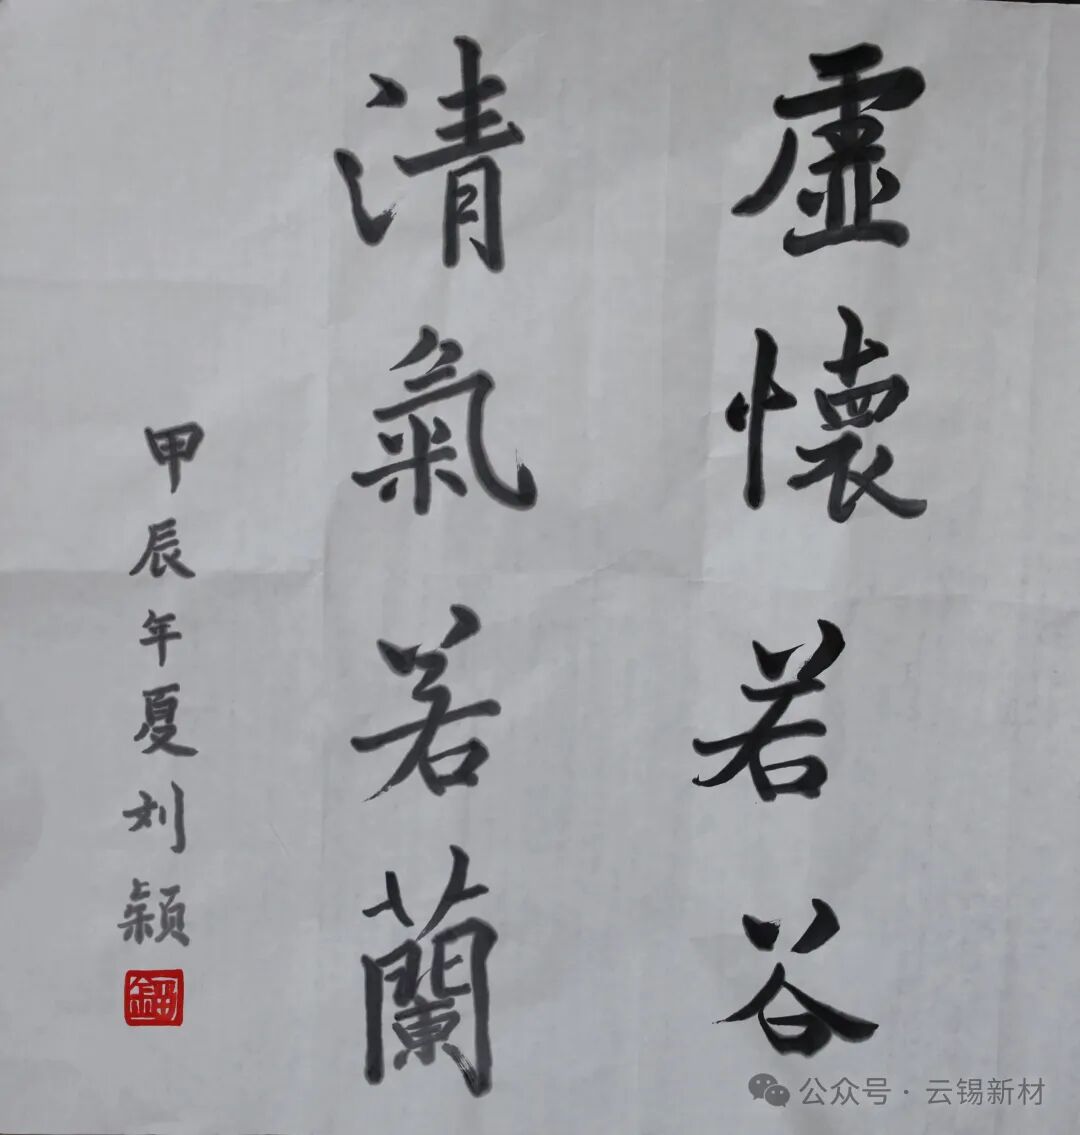 虛懷若谷
清氣若蘭
甲辰年夏刘颖
公众号·云锡新材